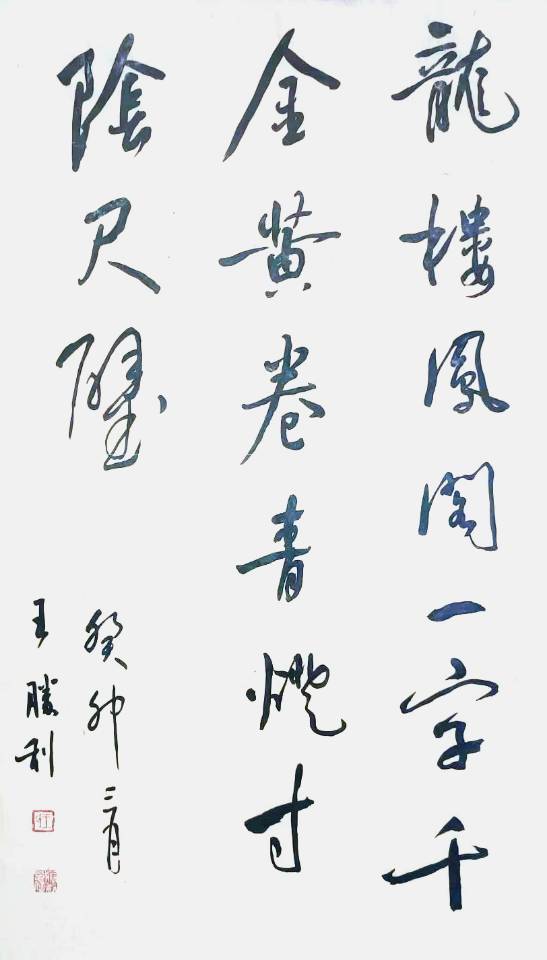 龍樓鳳閣一字千
金黃卷青燈寸
陰尺璧
癸卯三月
王勝利